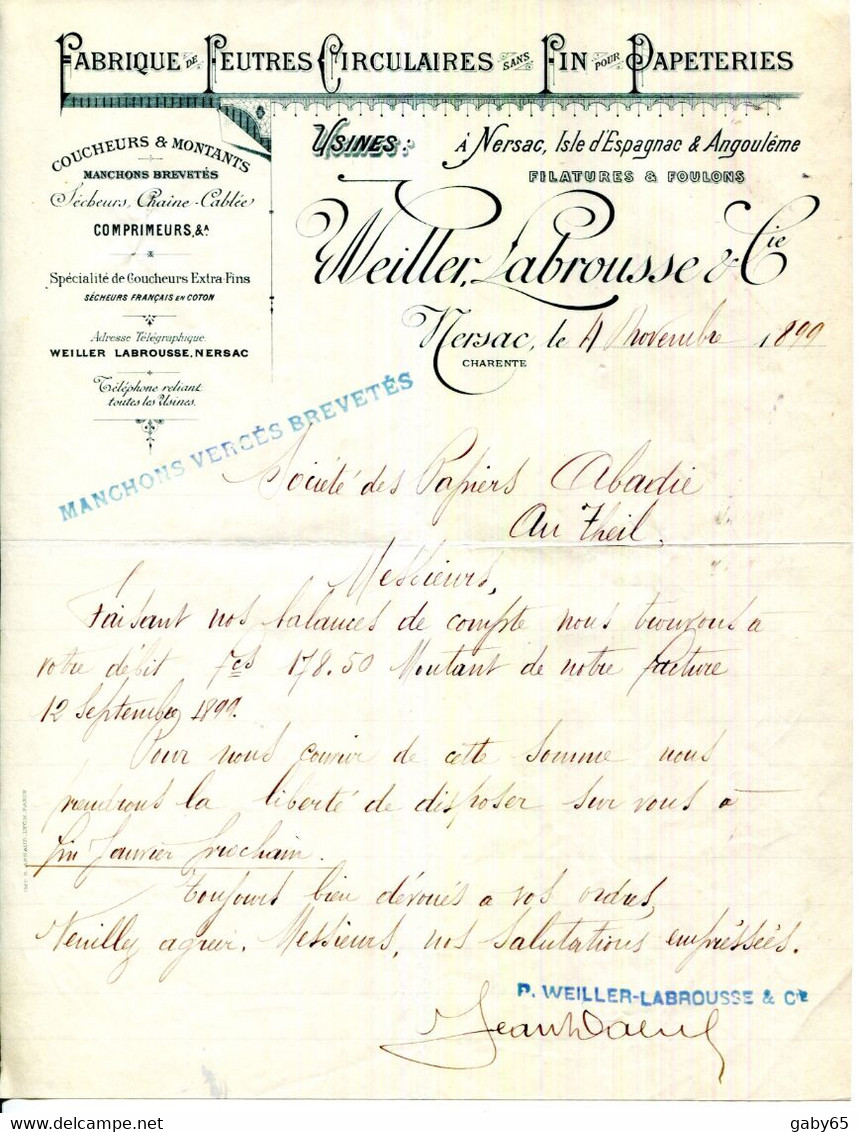 FABRIQUE DE FEUTRES CIRCULAIRES SANS FIN POUR PAPETERIES
COUCHEURS & MONTANTS
MANCHONS BREVETÉS
Sécheurs, Chaîne-Cablée
COMPRIMEURS, &A
&
Spécialité de Coucheurs Extra-Fins
SÉCHEURS FRANÇAIS EN COTON
Adresse Télégraphique
WEILLER LABROUSSE, NERSAC
Téléphone reliant
toutes les Usines.
USINES: À Nersac, Isle d'Espagnac & Angoulême
FILATURES & FOULONS
Weiller, Labrousse & Cie
Nersac, le 4 Novembre 1899
CHARENTE
MANCHONS VERCÉS BREVETÉS
Société des Papiers Abadie
Au Theil.
Messieurs,
Faisant nos balances de compte nous trouvons à
votre débit Fcs 178.50 Montant de notre facture
12 Septembre 1899.
Pour nous couvrir de cette somme nous
prendrons la liberté de disposer sur vous à
fin Janvier prochain.
Toujours bien dévoués à vos ordres,
Veuillez agréer, Messieurs, nos salutations empréssées.
P. WEILLER-LABROUSSE & Cie
gaby65